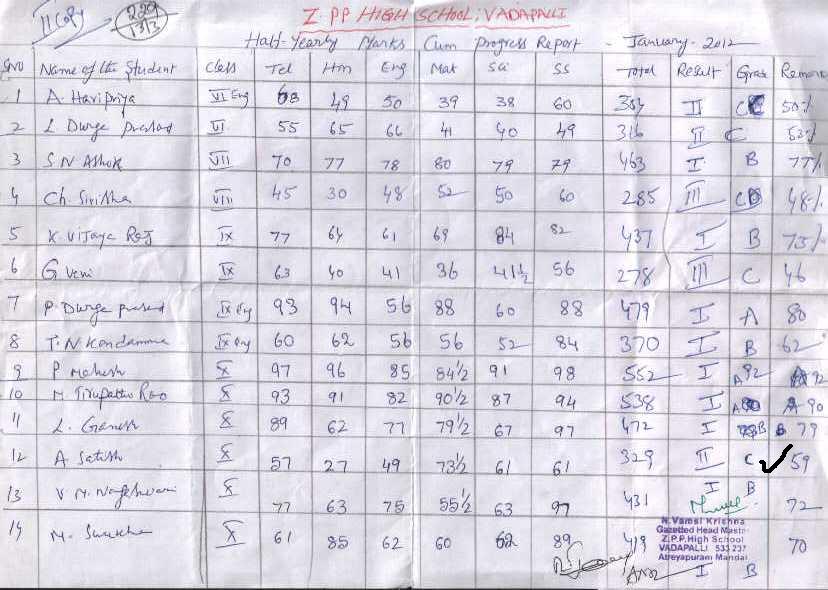 II Copy
229
13/3
Z.P.P HIGH SCHOOL; VADAPALLI
Half-Yearly Marks Cum Progress Report - January-2012
SNO Name of the Student Class Tel Hm Eng Mat Sci SS Total Result Grae Remark
1 A. Haripriya VI Eng 68 49 50 39 38 60 304 II C 50%
2 L. Durga prasad VI 55 65 66 41 40 49 316 II C 53%
3 S N Ashok VII 70 77 78 80 79 79 463 I B 77%
4 Ch. Sirisha VIII 45 30 48 52 50 60 285 III C 48%
5 K. Vijaya Raj IX 77 64 61 69 84 82 437 I B 73%
6 G Veni IX 63 40 41 36 41½ 56 278 III C 46
7 P. Durga prasad IX Eng 93 94 56 88 60 88 479 I A 80
8 T. N Kondamma IX Eng 60 62 56 56 52 84 370 I B 62
9 P Mahesh X 97 96 85 84½ 91 98 552 I A 92 A 92
10 M. Tirupatho Rao X 93 91 82 90½ 87 94 538 I A A-90
11 L. Ganesh X 89 62 77 79½ 67 97 472 I B 79
12 A Satish X 57 27 49 73½ 61 61 329 II C ✓ 59
13 V. M. Nageshwari X 77 63 75 55½ 63 97 431 I B 72
14 M. X 61 85 62 60 62 89 419 I B 70
N. Vamsi Krishna
Gazetted Head Master
Z.P.P.High School
VADAPALLI 533 237
Atreyapuram Mandal